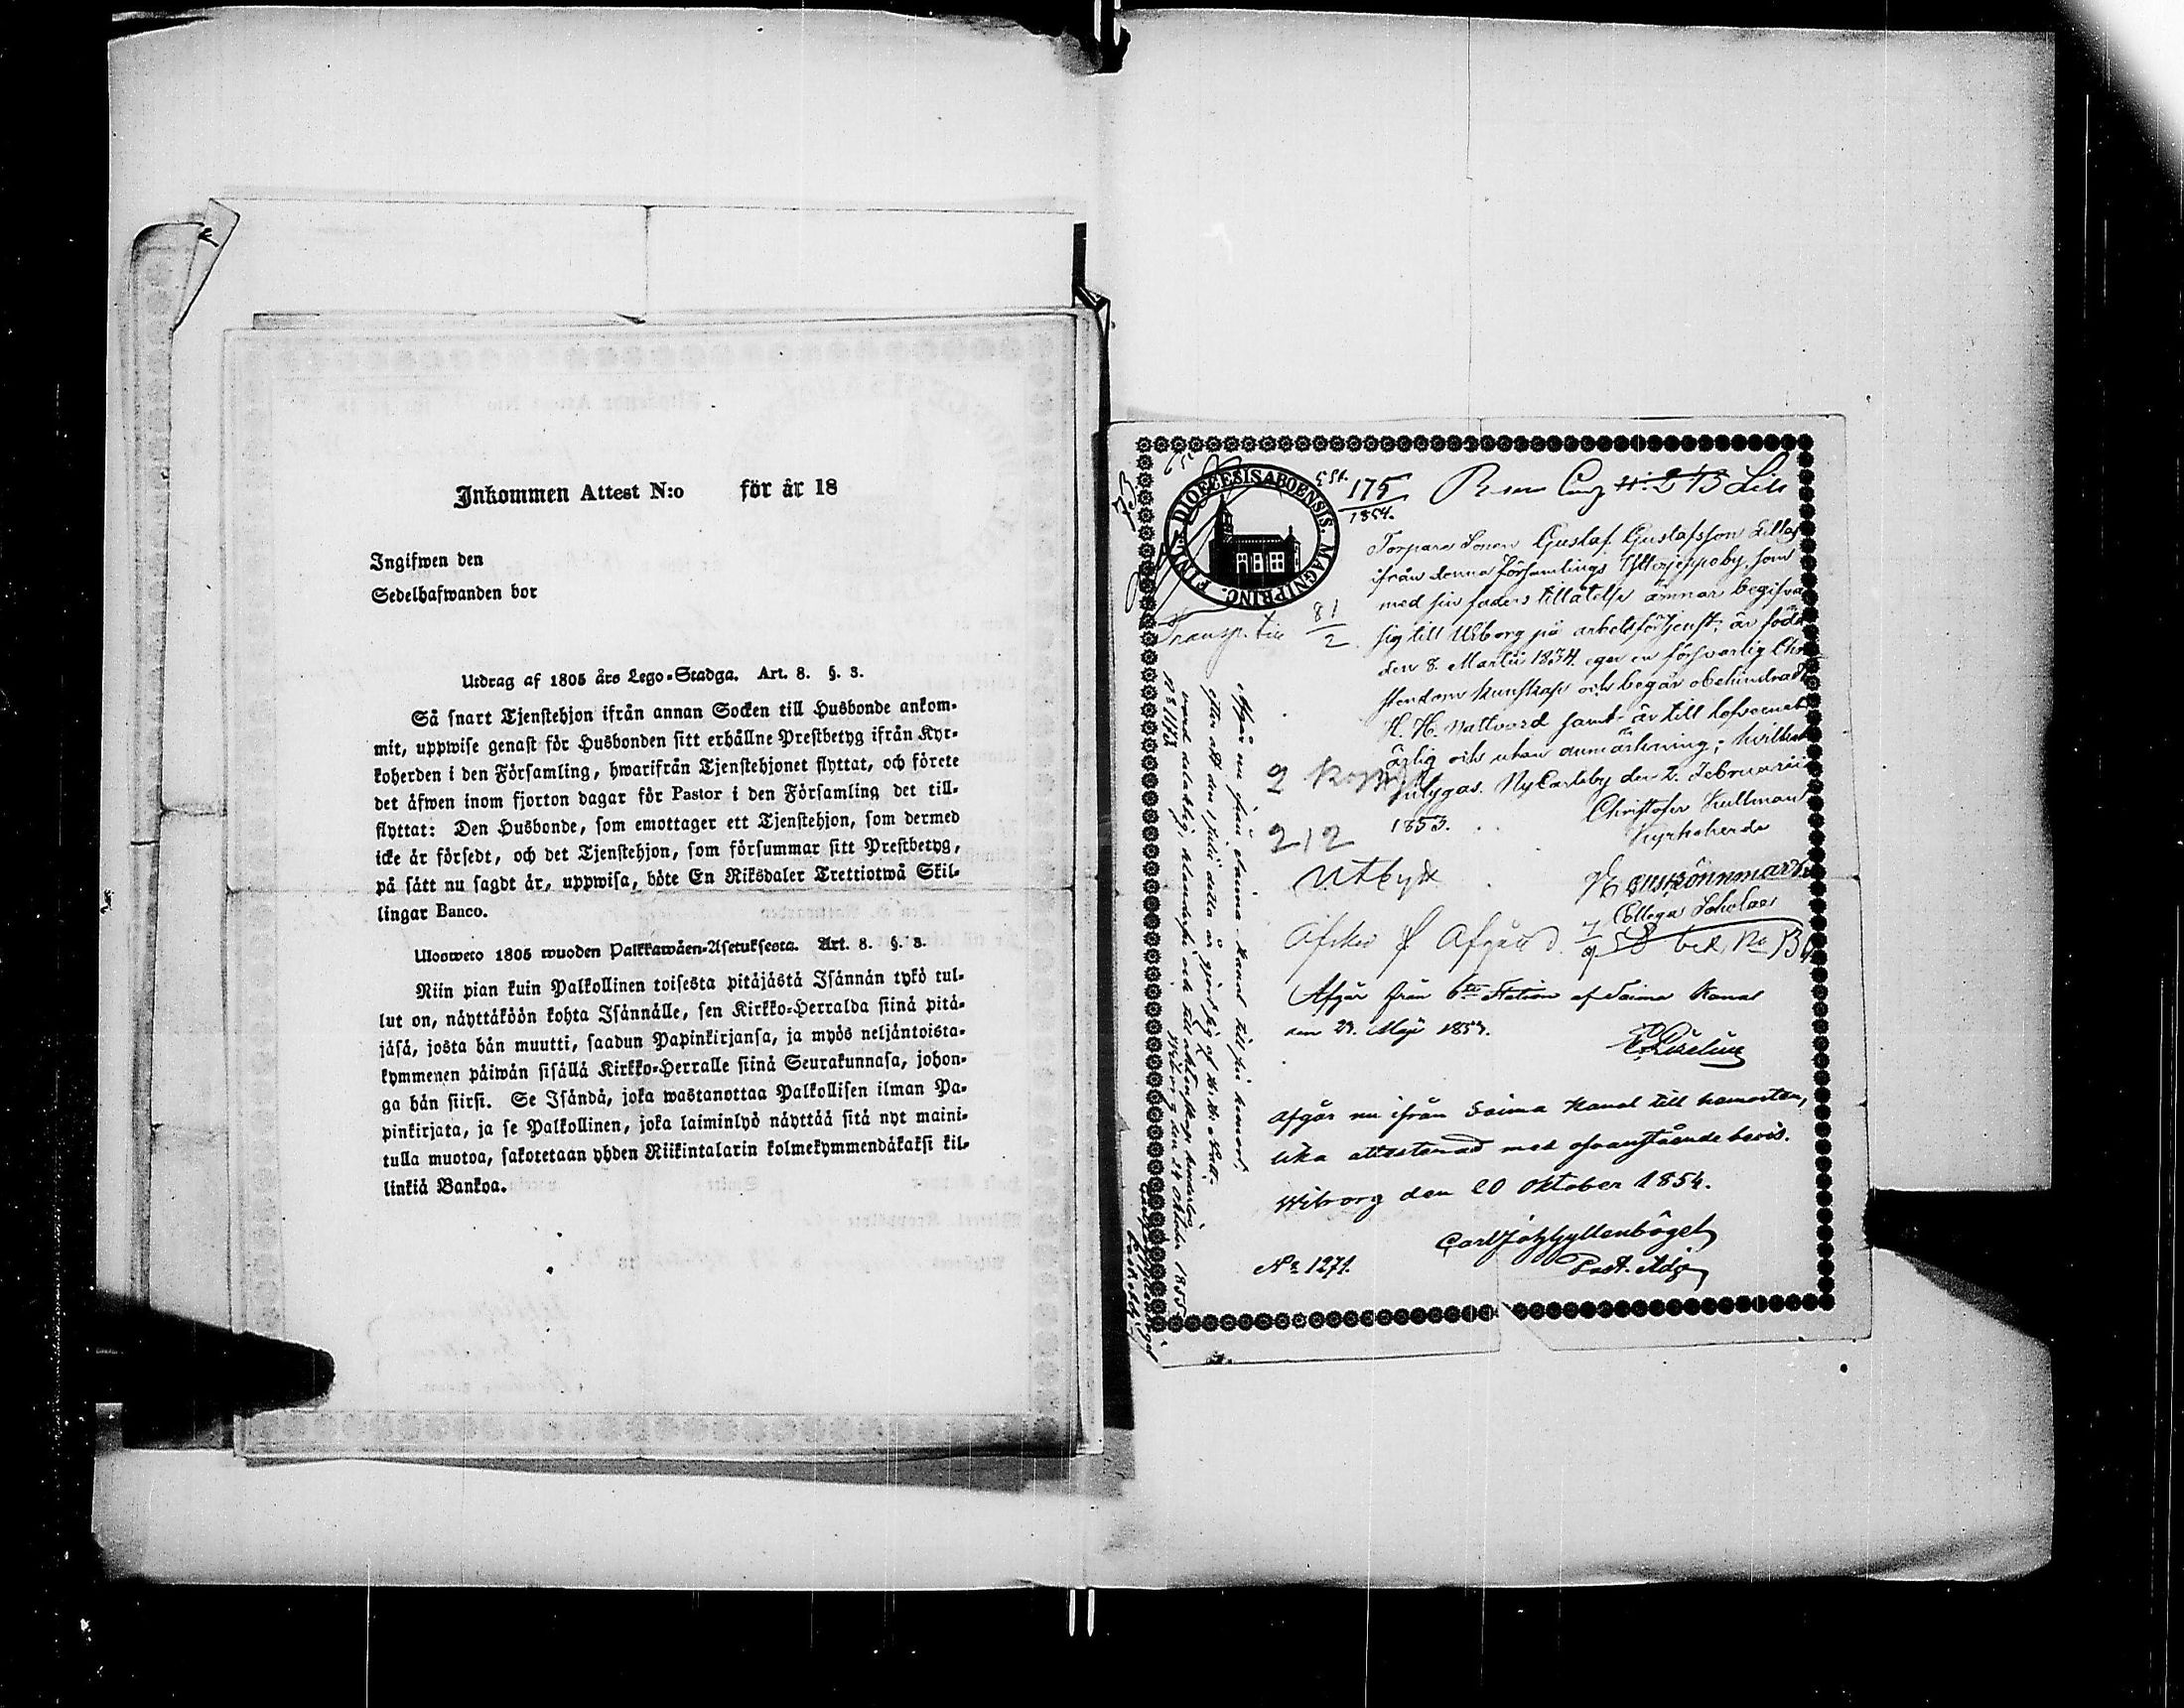 Inkommen Attest N:o för år 18
Ingifwen den
Sedelhafwanden bor
Utdrag af 1805 års Lego-Stadga. Art. 8. §. 3.
Så snart Tjenstehjon ifrån annan Socken till Husbonde ankom-
mit, uppwise genast för Husbonden sitt erhållne Prestbetyg ifrån Kyr-
koherden i den Församling, hwarifrån Tjenstehjonet flyttat, och förete
det äfwen inom fjorton dagar för Pastor i den Församling det till-
flyttat: Den Husbonde, som emottager ett Tjenstehjon, som dermed
icke är försedt, och det Tjenstehjon, som försummar sitt Prestbetyg,
på sätt nu sagdt är, uppwisa, böte En Riksdaler Trettiotwå Skil-
lingar Banco.
Ulosweto 1805 wuoden Palkkawäen-Asetuksesta. Art. 8. §. 3.
Niin pian kuin Palkollinen toisesta pitäjästä Isännän tykö tul-
lut on, näyttäköön kohta Isännälle, sen Kirkko-Herralda siinä pitä-
jäsä, josta hän muutti, saadun Papinkirjansa, ja myös neljäntoista-
kymmenen päiwän sisällä Kirkko-Herralle siinä Seurakunnasa, johon-
ga hän siirsi. Se Isändä, joka wastanottaa Palkollisen ilman Pa-
pinkirjata, ja se Palkollinen, joka laiminlyö näyttää sitä nyt maini-
tulla muotoa, sakotetaan yhden Riikintalarin kolmekymmendäkaksi kil-
linkiä Bankoa.
DIOECESIS ABOENSIS. MAGNI PRINC. FINL.
175
1854.
Torpare Sonen Gustaf Gustafsson Lillas
ifrån denna församlings Ytterjeppoby, som
med sin faders tillåtelse ämnar begifva
sig till Wiborg på arbetsförtjenst; är född
den 8. Martii 1834. eger en försvarlig Chri
stendoms kunskap och begår obehindradt
H. H. Nattvard samt är till lefvernet
ärlig och utan anmärkning; hvilket
intygas. NyCarleby den 2. Februarii
1853.
Christofer Kullman
Kyrkoherde
Collega Scholae
Transp. till 81
2
212
utbytt
Afgår från 6te Station af Saima Kanal
den 27. Maji 1854.
Afgår nu ifrån Saima Kanal till hemorten,
lika attesterad med ofvanstående bevis.
Wiborg den 20 Oktober 1854.
Carl Joh Gyllenbögel
Past. Adj.
No 1271.
Afgår nu från Saima Kanal till sin hemort,
efter att den 1 Julii detta år gjort sig af H. H. Natt-
vard delaktig,
Wiborg den 24 Oktober 1855.